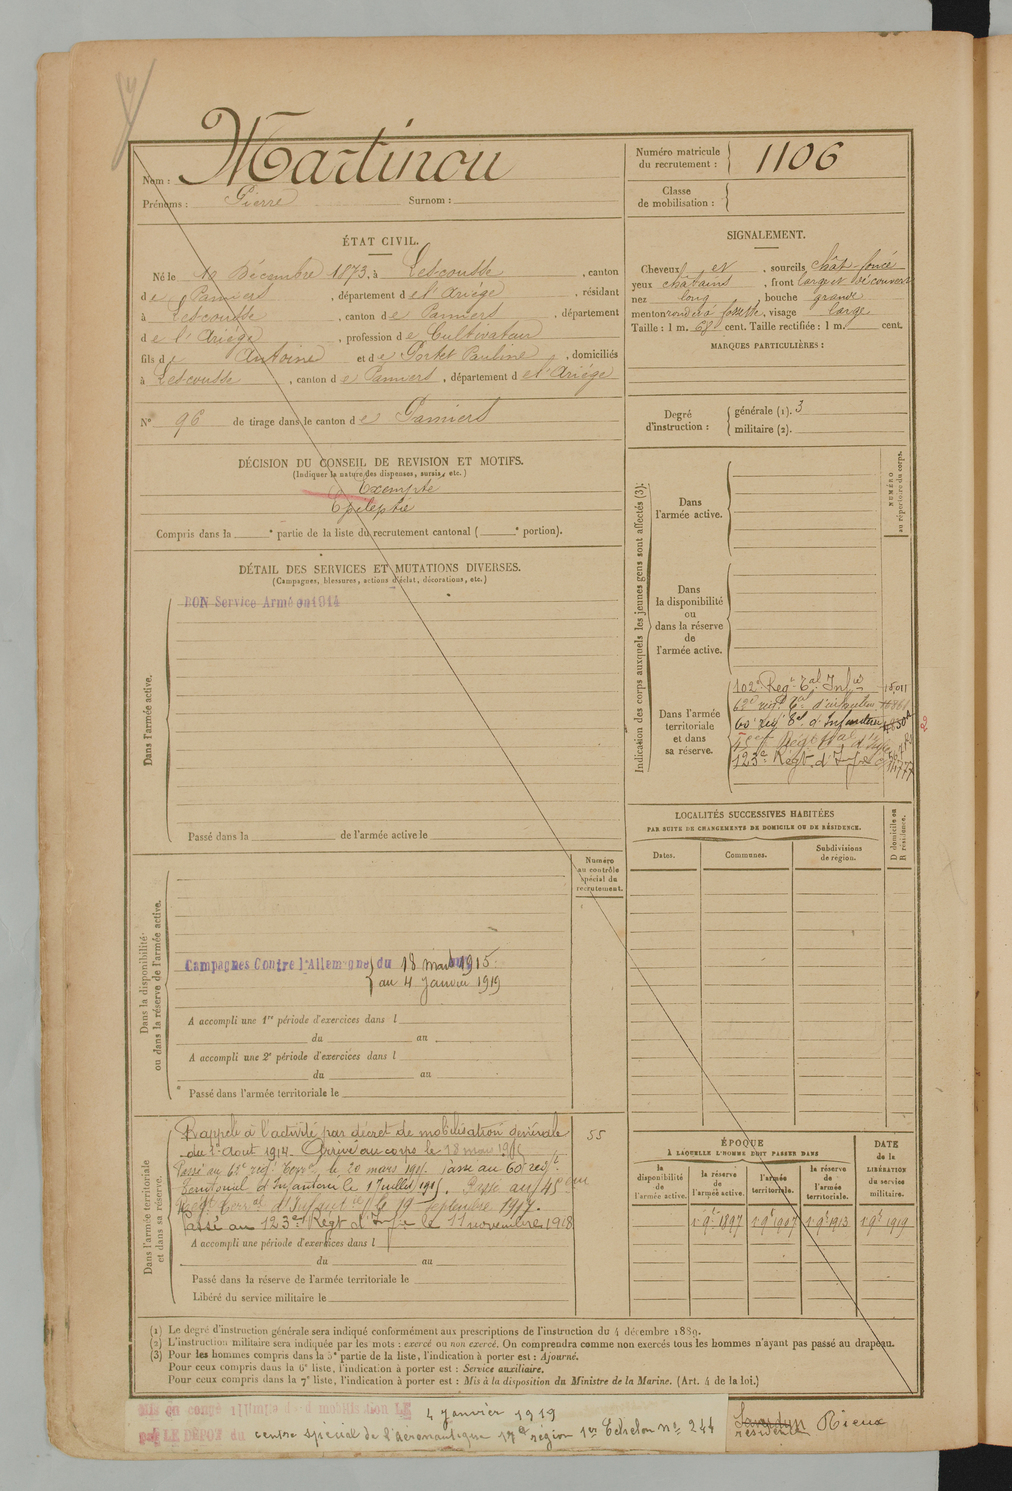 Martinou
Nom :
Prénoms : Pierre Surnom :
Numéro matricule
du recrutement : 1106
Classe
de mobilisation :
ÉTAT CIVIL.
Né le 10 Décembre 1873, à Lescousse, canton
de Pamiers, département de l'Ariège, résidant
à Lescousse, canton de Pamiers, département
de l'Ariège, profession de Cultivateur
fils de Antoine et de Portet Pauline, domiciliés
à Lescousse, canton de Pamiers, département de l'Ariège
N° 96 de tirage dans le canton de Pamiers
SIGNALEMENT.
Cheveux et sourcils chât-foncé
yeux châtains, front large et découvert
nez long, bouche grande
menton rond et à fossette, visage large
Taille : 1 m. 68 cent. Taille rectifiée : 1 m. cent.
MARQUES PARTICULIÈRES :
Degré
d'instruction :
générale (1). 3
militaire (2).
DÉCISION DU CONSEIL DE REVISION ET MOTIFS.
(Indiquer la nature des dispenses, sursis, etc.)
Exempté
Epileptie
Compris dans la e partie de la liste du recrutement cantonal ( e portion).
DÉTAIL DES SERVICES ET MUTATIONS DIVERSES.
(Campagnes, blessures, actions d'éclat, décorations, etc.)
BON Service Armé en 1914
Dans l'armée active.
Passé dans la de l'armée active le
Indication des corps auxquels les jeunes gens sont affectés (3).
NUMÉRO
au répertoire du corps.
Dans
l'armée active.
Dans
la disponibilité
ou
dans la réserve
de
l'armée active.
Dans l'armée
territoriale
et dans
sa réserve.
102e Reg t Tal Infie 18,011
62e régt Tal d'infanterie
60 Reg Tal d'Infanterie
45e Régt Tal d'Infie
123e Régt d'Infie
LOCALITÉS SUCCESSIVES HABITÉES
PAR SUITE DE CHANGEMENTS DE DOMICILE OU DE RÉSIDENCE.
Dates. Communes. Subdivisions
de région.
D domicile ou
R résidence.
Dans la disponibilité
ou dans la réserve de l'armée active.
Numéro
au contrôle
spécial du
recrutement.
Campagnes Contre l'Allemagne du 18 mars 1915
au 4 Janvier 1919
A accompli une 1re période d'exercices dans l
du au
A accompli une 2e période d'exercices dans l
du au
Passé dans l'armée territoriale le
Dans l'armée territoriale
et dans sa réserve.
Rappelé à l'activité par décret de mobilisation Générale 55
du 1er Aout 1914. Arrivé au corps le 18 mars 1915
Passé au 62e régt Terral le 20 mars 1915. Passé au 60e régt
Territorial d'Infanterie le 1 Juillet 1915. Passé au 45eme
Régt Terral d'Infanterie le 19 Septembre 1917.
Passé au 123e Régt d'Infie le 11 novembre 1918
A accompli une période d'exercices dans l
du au
Passé dans la réserve de l'armée territoriale le
Libéré du service militaire le
ÉPOQUE
À LAQUELLE L'HOMME DOIT PASSER DANS
la
disponibilité
de
l'armée active.
la réserve
de
l'armée active.
l'armée
territoriale.
la réserve
de
l'armée
territoriale.
DATE
de la
LIBÉRATION
du service
militaire.
1er 9bre 1897 1er 9bre 1907 1er 9bre 1913 1er 9bre 1919
(1) Le degré d'instruction générale sera indiqué conformément aux prescriptions de l'instruction du 4 décembre 1889.
(2) L'instruction militaire sera indiquée par les mots : exercé ou non exercé. On comprendra comme non exercés tous les hommes n'ayant pas passé au drapeau.
(3) Pour les hommes compris dans la 5e partie de la liste, l'indication à porter est : Ajourné.
Pour ceux compris dans la 6e liste, l'indication à porter est : Service auxiliaire.
Pour ceux compris dans la 7e liste, l'indication à porter est : Mis à la disposition du Ministre de la Marine. (Art. 4 de la loi.)
Mis en congé illimité de démobilisation LE 4 Janvier 1919
par LE DÉPOT du centre spécial de l'aéronautique 17e région 1er Echelon n° 244
Saverdun Rieux
résidence